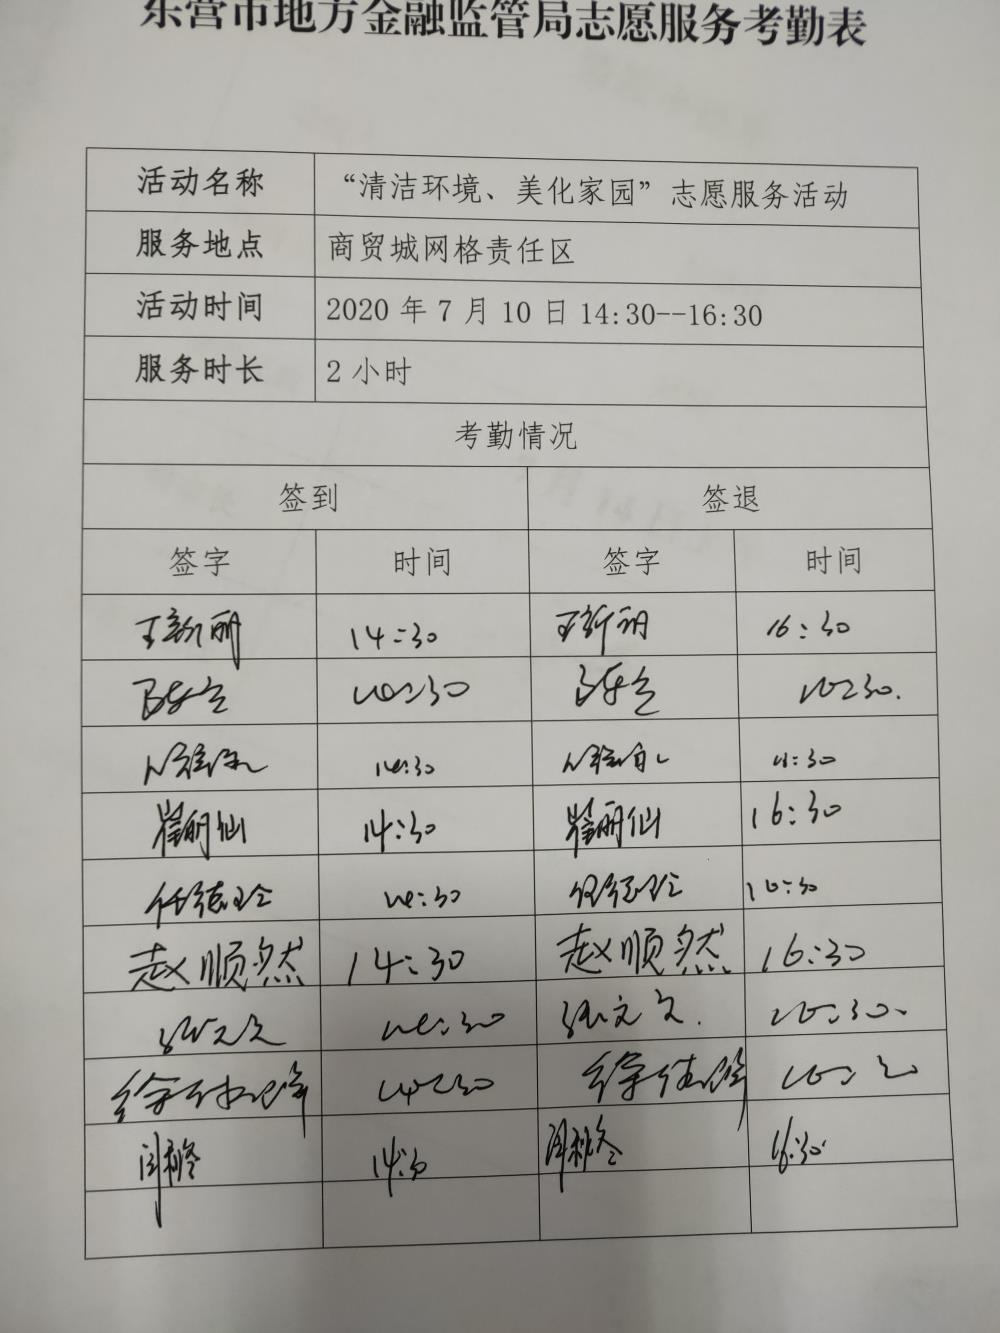 东营市地方金融监管局志愿服务考勤表
活动名称 “清洁环境、美化家园”志愿服务活动
服务地点 商贸城网格责任区
活动时间 2020 年 7 月 10 日 14:30--16:30
服务时长 2 小时
考勤情况
签到 签退
签字 时间 签字 时间
王新丽 14:30 王新丽 16:30
14:30 16:30.
14:30
崔丽仙 14:30 崔丽仙 16:30
任德玲 14:30 任德玲 16:30
赵顺然 14:30 赵顺然 16:30
张文文 14:30 张文文. 16:30.
14:30
14:30 16:30